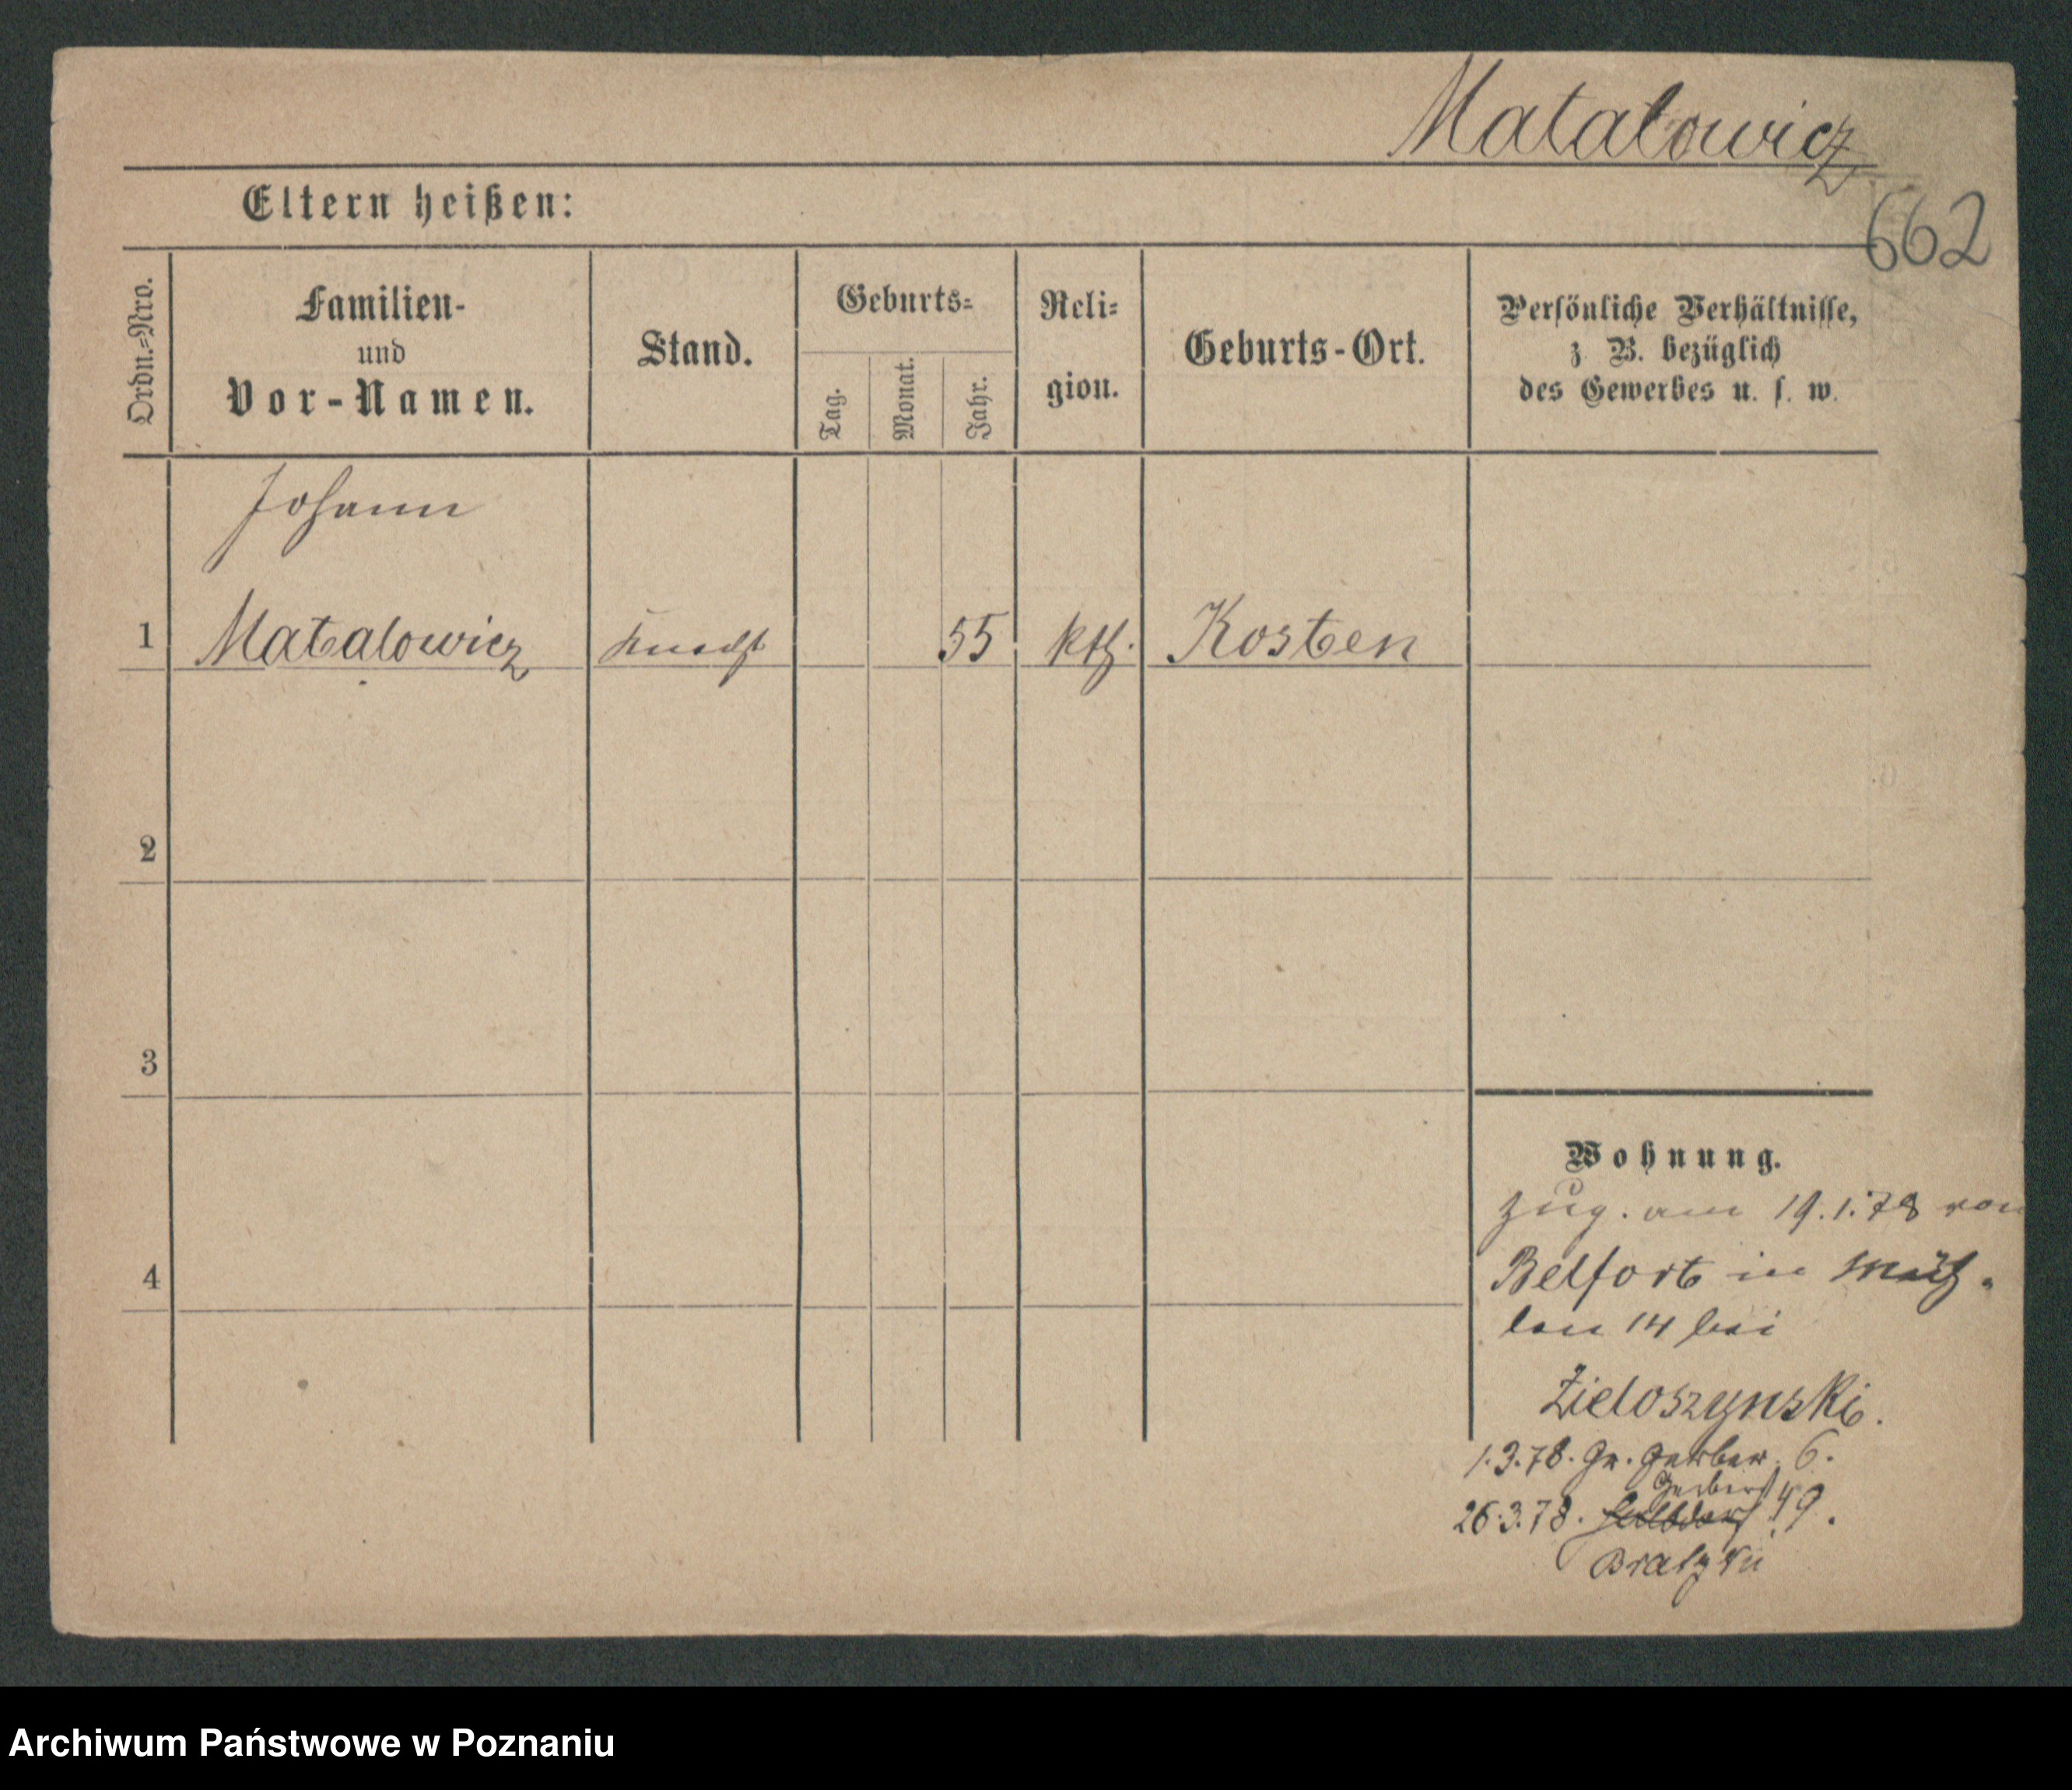 Matalowicz
662
Eltern heißen:
Ordn.-Nro.
Familien-
und
Vor-Namen.
Stand.
Geburts-
Tag.
Monat.
Jahr.
Reli-
gion.
Geburts-Ort.
Persönliche Verhältnisse,
z B. bezüglich
des Gewerbes u. s. w.
Johann
1 Matalowicz Knecht 55 kth. Kosten
2
3
4
Wohnung.
zug. am 19.1.78 von
Belfort in
14 bei
Zieloszynski.
1.3.78. Gr. Gerber. 6.
Gerber
26.3.78. 49.